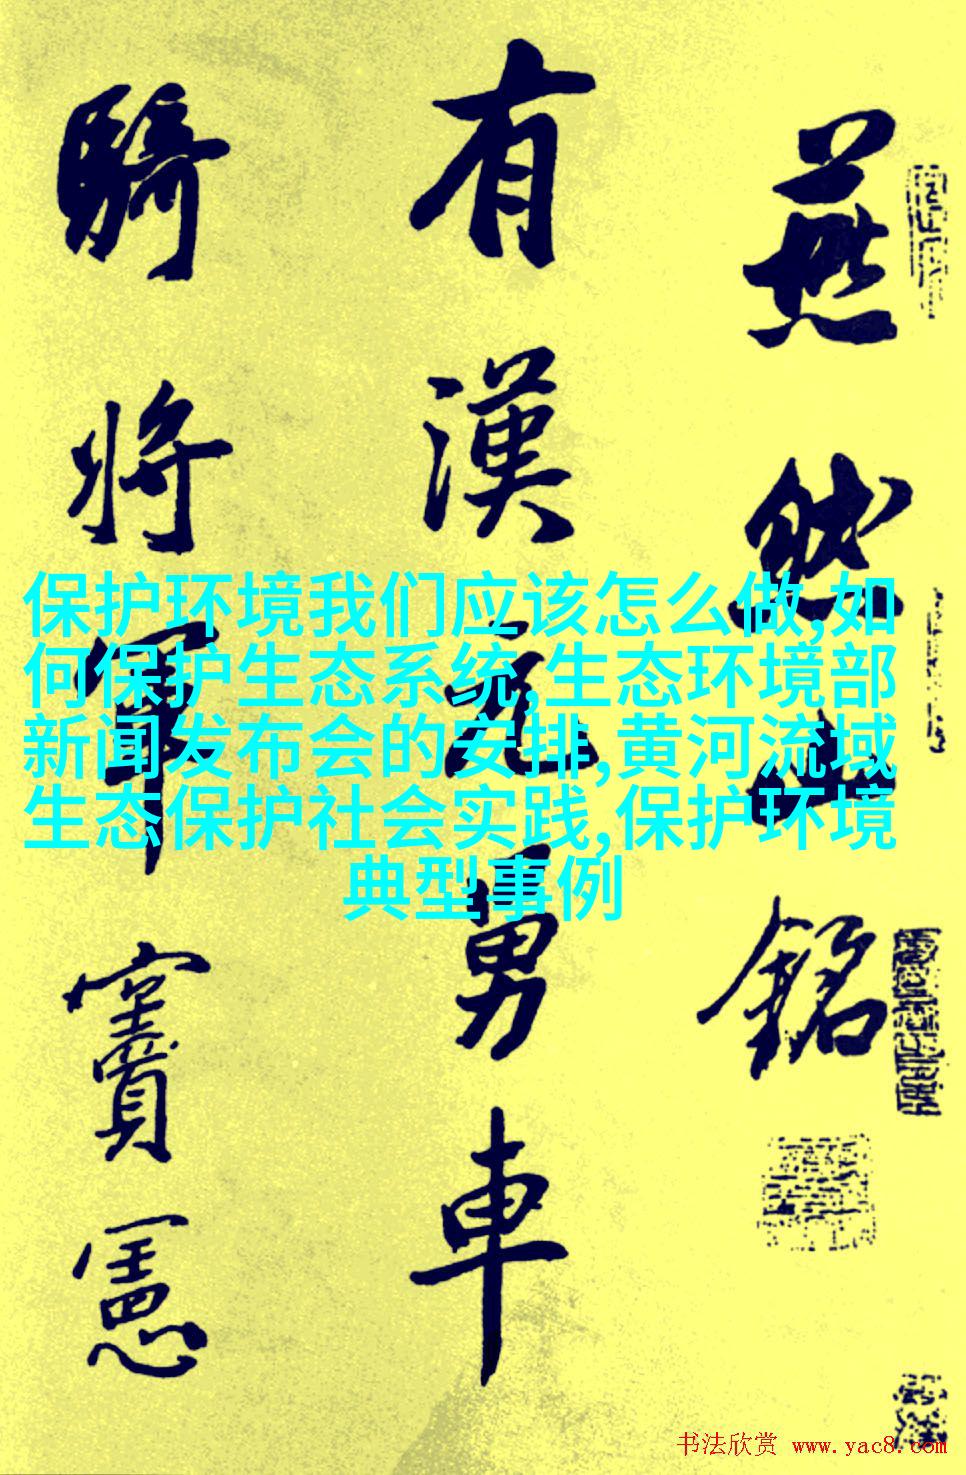 燕然山銘
有漢元舅車
騎將軍竇憲
保护环境我们应该怎么做,如
何保护生态系统,生态环境部
新闻发布会的安排,黄河流域
生态保护社会实践,保护环境
典型事例
书法欣赏 www.yac8.com